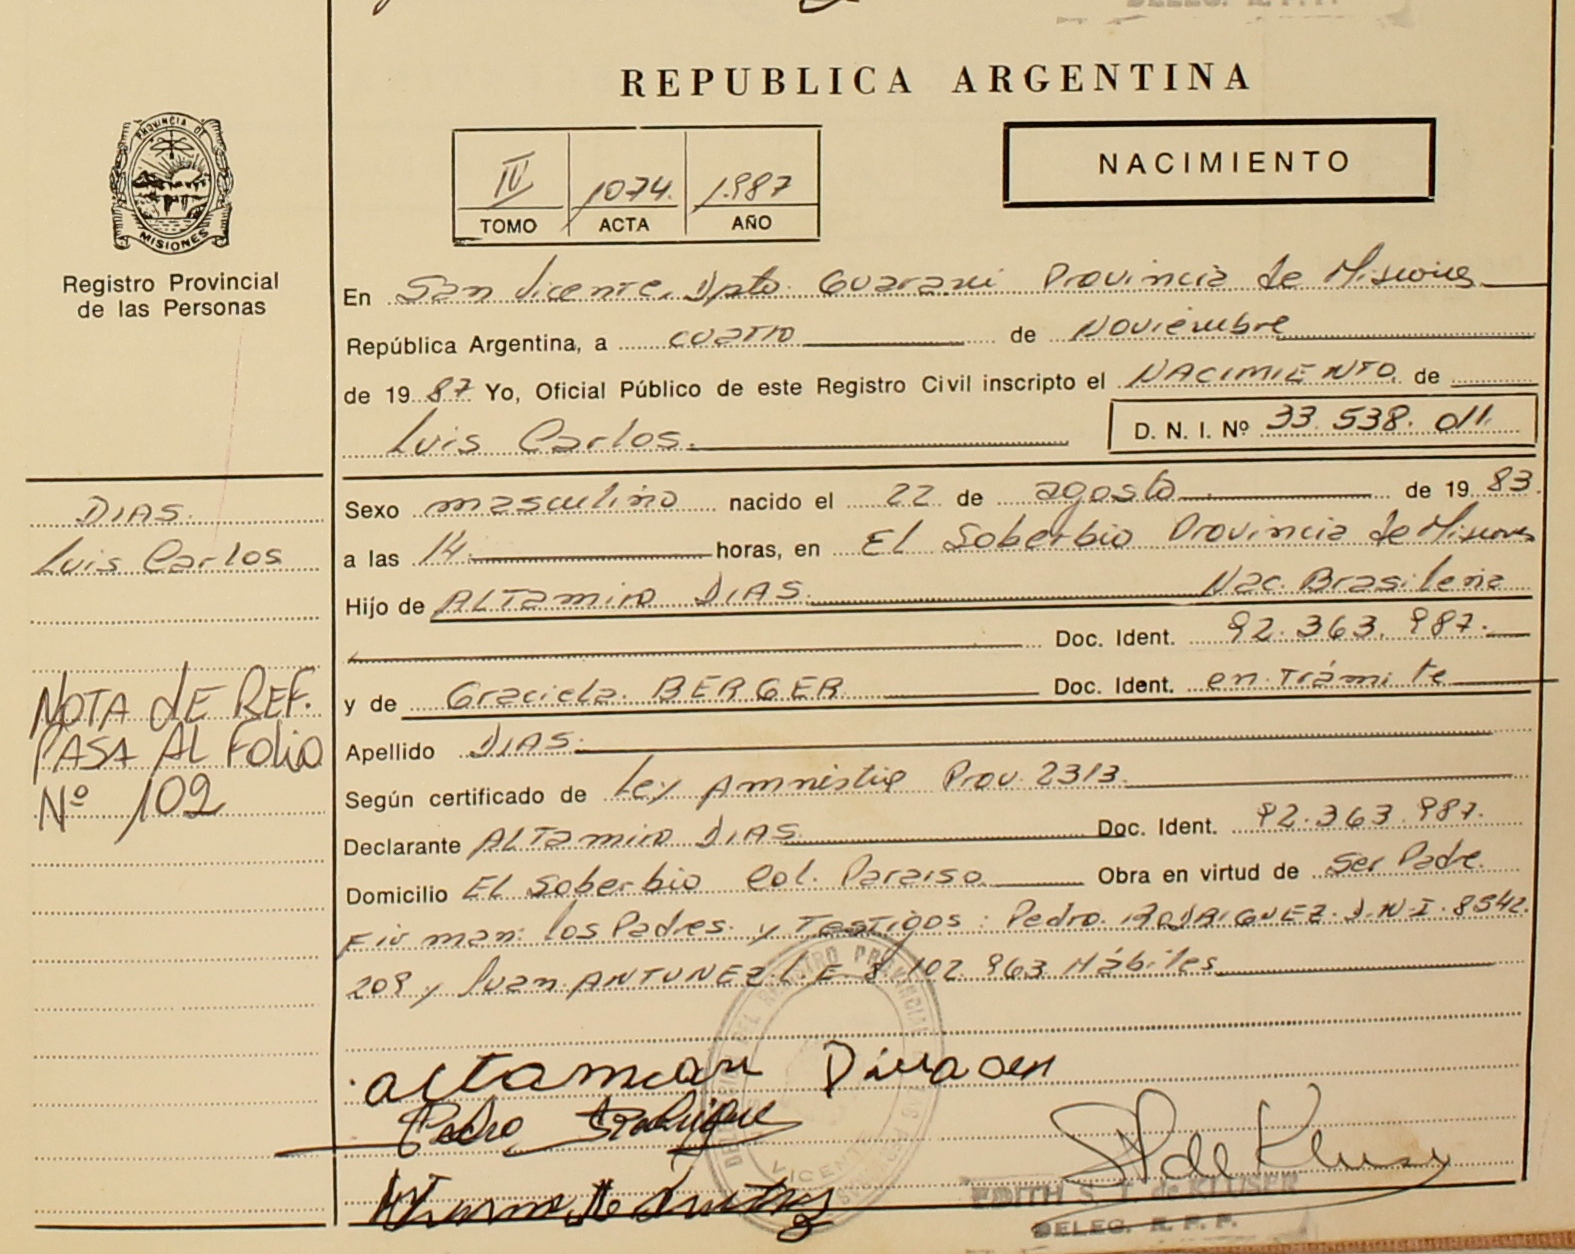 DELEG. R. P. P.
REPUBLICA ARGENTINA
PROVINCIA DE
MISIONES
Registro Provincial
de las Personas
IV 1074. 1.987
TOMO ACTA AÑO
NACIMIENTO
En San Vicente, Dpto. Guaraní Provincia de Misiones
República Argentina, a cuatro de Noviembre
de 1987 Yo, Oficial Público de este Registro Civil inscripto el NACIMIENTO de
Luis Carlos. D. N. I. Nº 33.538.011.
Sexo masculino nacido el 22 de agosto de 1983.
a las 14 horas, en El Soberbio Provincia de Misiones
Hijo de ALTamiro DIAS. Nac. Brasileña
Doc. Ident. 92.363.987.
y de Graciela BERGER Doc. Ident. en Trámite
Apellido DIAS.
Según certificado de Ley Amnistía Prov. 2313.
Declarante ALTamiro DIAS Doc. Ident. 92.363.987.
Domicilio El Soberbio Col. Paraiso Obra en virtud de Ser Padre.
Firman: los Padres y Testigos: Pedro RODRIGUEZ D.N.I. 8542.
209 y Juan ANTUNEZ L.E 8.102.963 Hábiles
DIAS.
Luis Carlos
NOTA dE REF.
PASA AL Folio
Nº 102
Pedro
EDITH S. T. de KLUSER
DELEG. R. P. P.